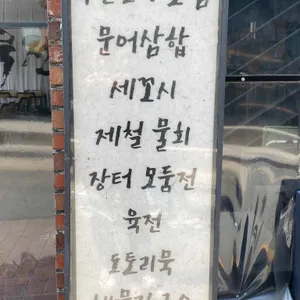 문어삼합
세꼬시
제철 물회
장터 모둠전
육전
도토리묵